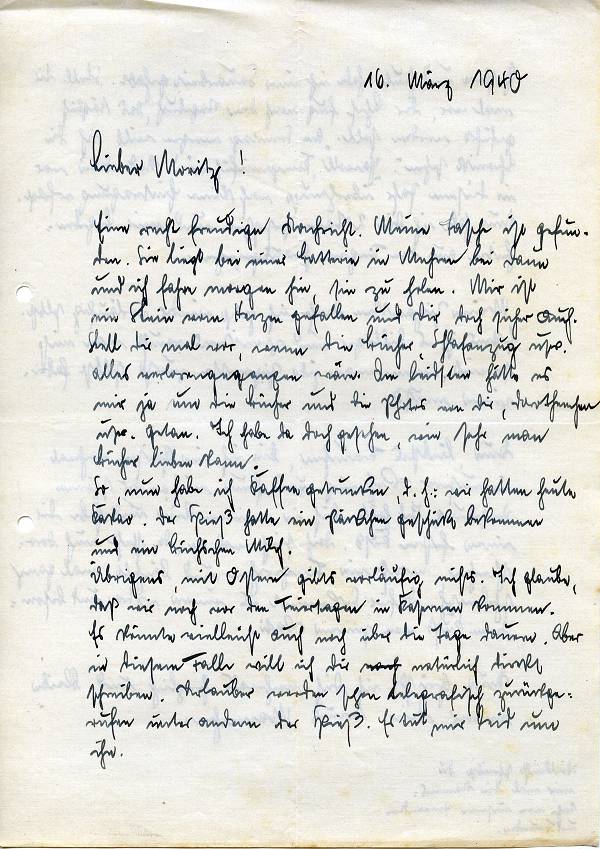 16. März 1940
Lieber Moritz!
Eine recht freudige Nachricht. Meine Tasche ist gefun-
den. Sie liegt bei einer Batterie in Mehren bei Daun
und ich fahre morgen hin, sie zu holen. Mir ist
ein Stein vom Herzen gefallen und Dir doch sicher auch.
Stell Dir mal vor, wenn die Bücher, Schlafanzug usw.
alles verlorengegangen wäre. Am leidsten hätte es
mir ja um die Bücher und die Photos von Dir, Dortchen
usw. getan. Ich habe da doch gesehen, wie sehr man
Bücher lieben kann.
So, nun habe ich Kaffee getrunken, d. h.: wir hatten heute
Kakao. Der Spieß hatte ein Päckchen geschickt bekommen
und ein Büchschen Milch.
Übrigens mit Ostern gibts vorläufig nichts. Ich glaube,
daß wir noch vor den Feiertagen in Kasernen kommen.
Es könnte vielleicht auch noch über die Tage dauern. Aber
in diesem Falle will ich Dir noch natürlich direkt
schreiben. Urlauber werden schon telegrafisch zurückge-
rufen unter andern der Spieß. Es tut mir leid um
ihn.